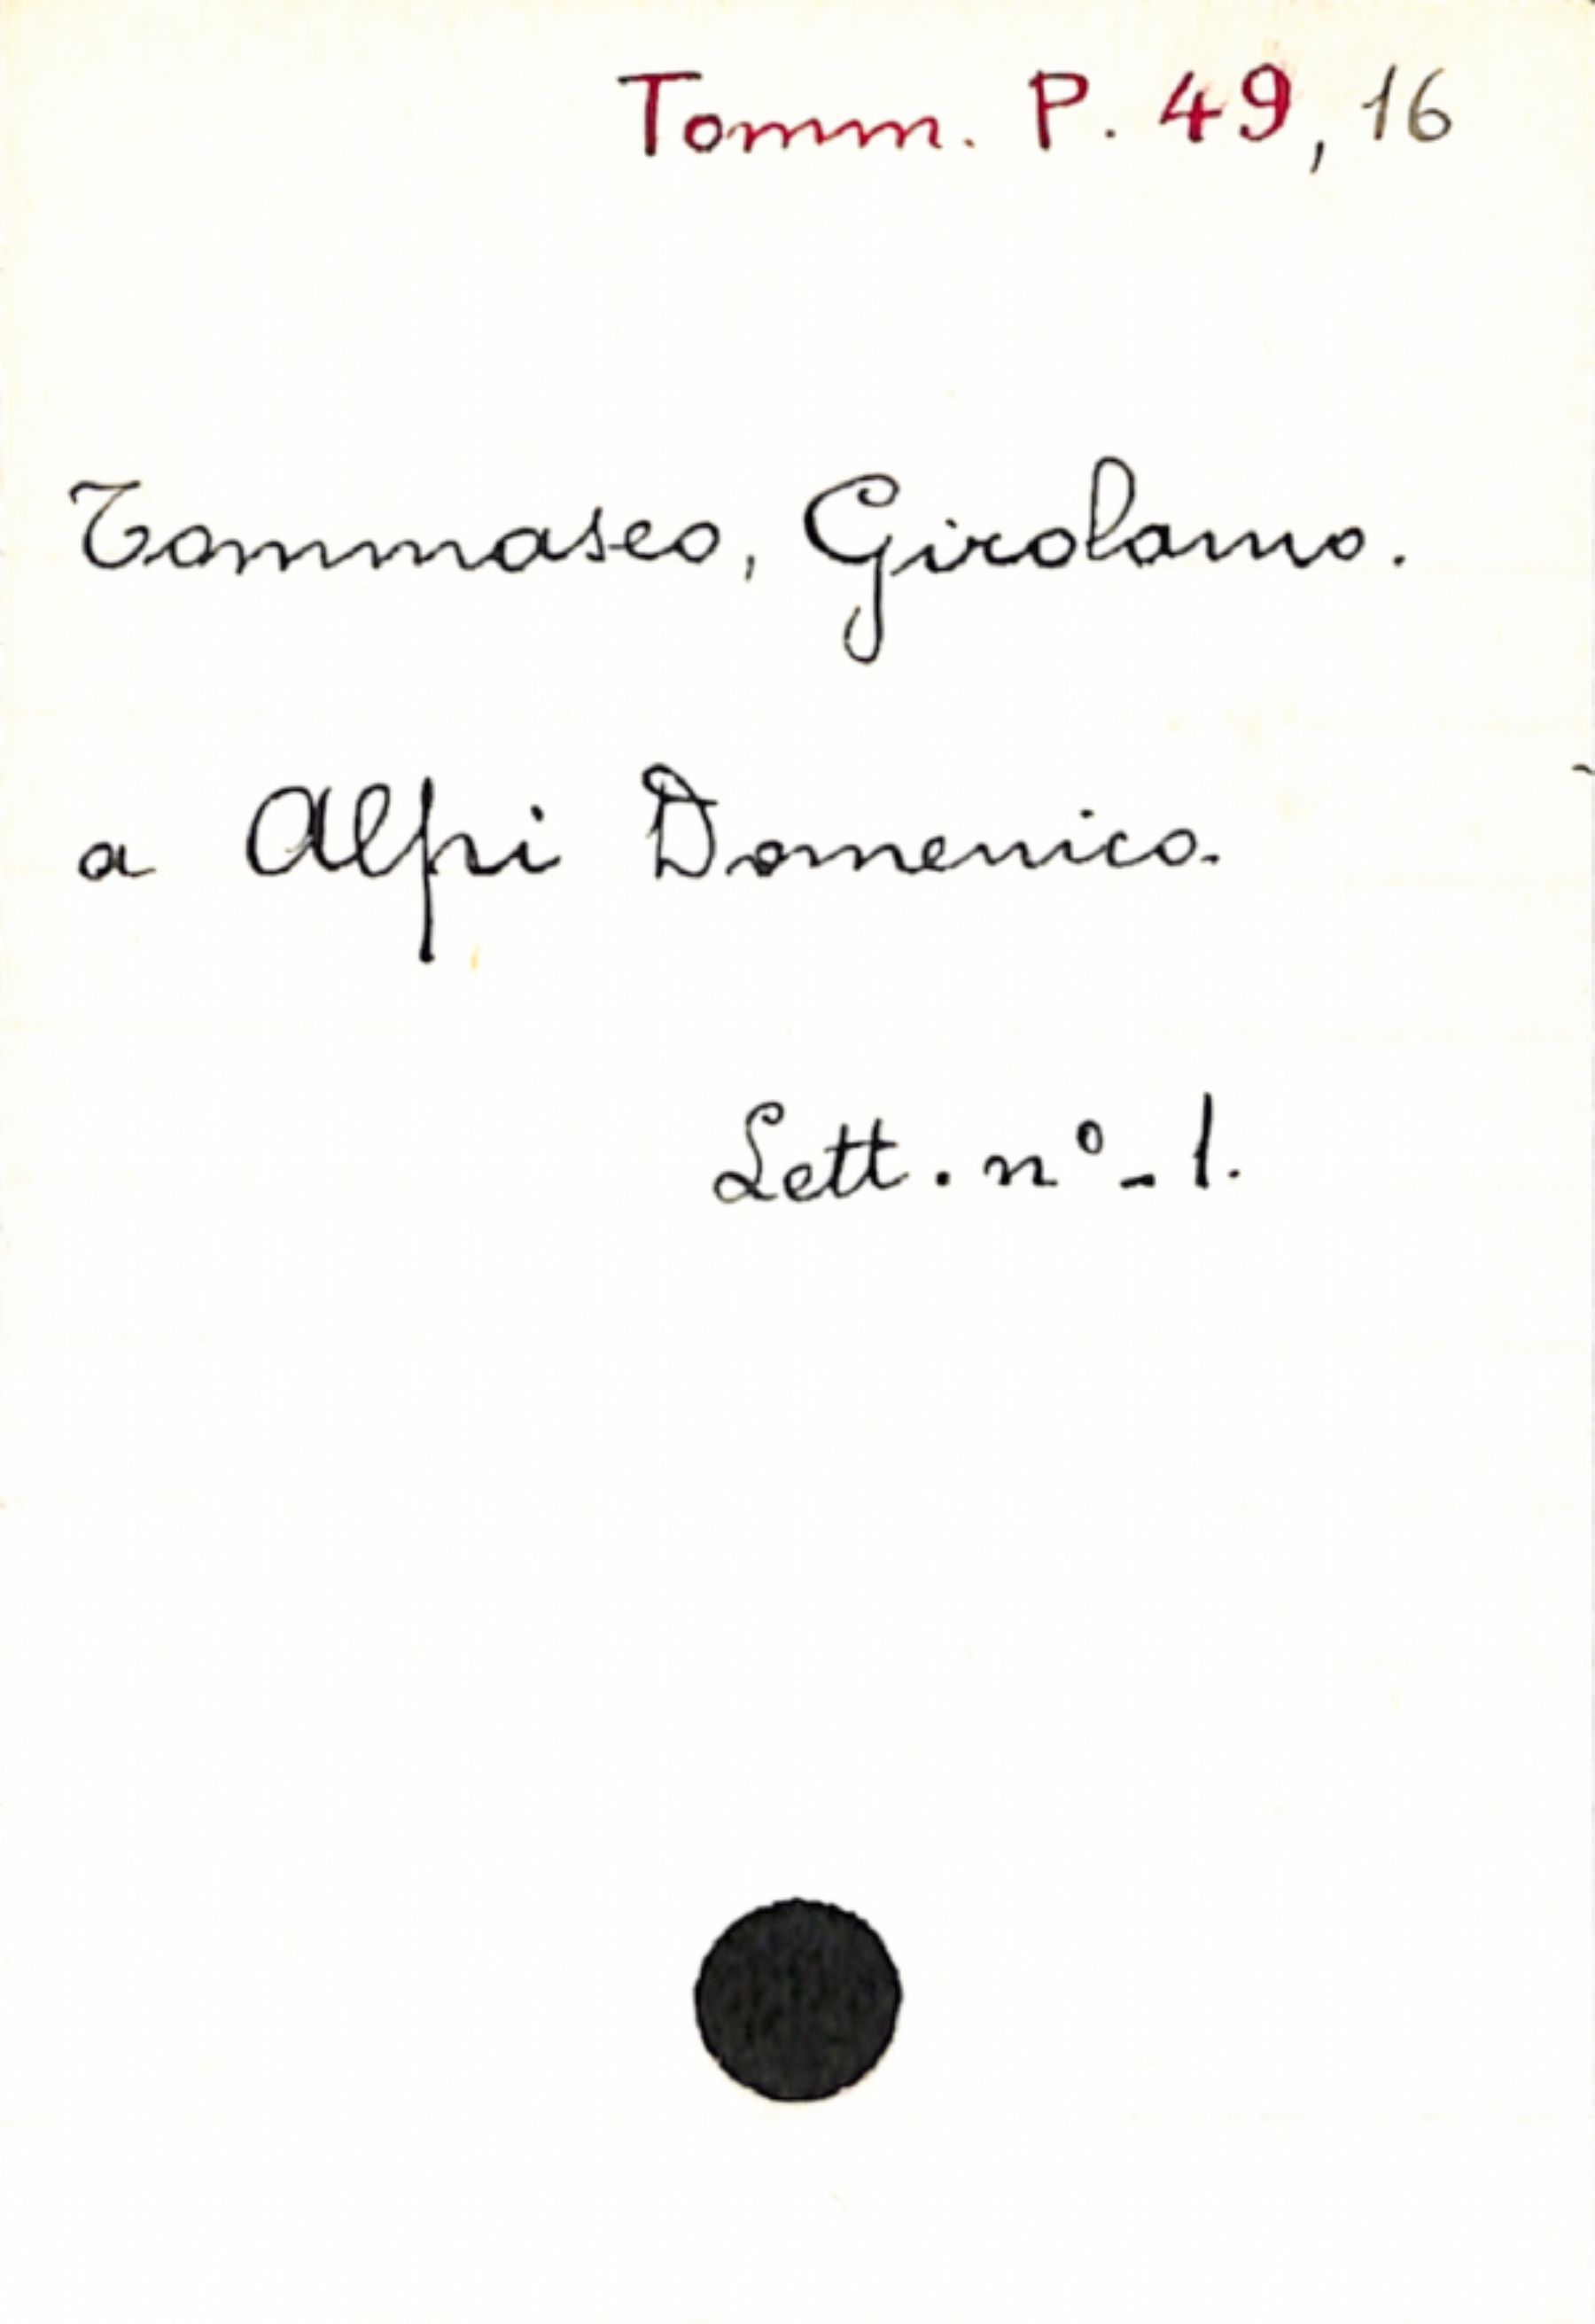 Tomm. P. 49, 16
Tommaseo, Girolamo.
a Alpi Domenico.
Lett. nº - 1.